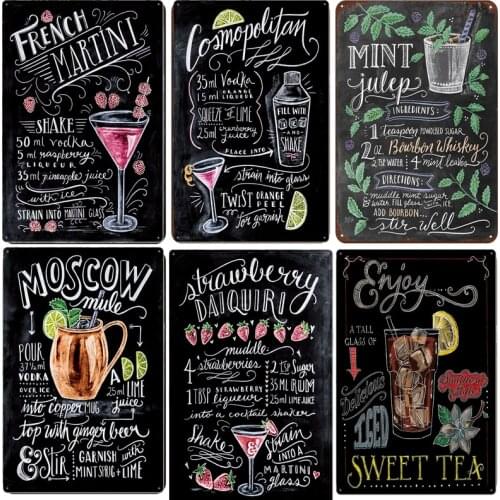 FRENCH
MARTINI
SHAKE
50 ml vodka
5 ml raspberry
LIQUEUR
35 ml pineapple juice
with ice
STRAIN INTO MARTINI GLASS
Cosmopolitan
35 ml Vodka
15 ml ORANGE LIQUEUR
SQUEEZE OF LIME
25 ml cranberry juice
PLACE INTO
FILL WITH
ICE
AND
SHAKE
strain into glass
TWIST ORANGE PEEL
for garnish
MINT
julep
INGREDIENTS:
1 teaspoon POWDERED SUGAR
2 oz Bourbon Whiskey
2 TSP WATER 4 mint leaves
DIRECTIONS:
muddle mint sugar
& water FILL glass W/ ICE
ADD BOURBON...
stir well
MOSCOW
mule
POUR
37½ ml
VODKA
OVER ICE
ADD
25 ml LIME
juice
into COPPER MUG
top with ginger beer
& Stir
GARNISH with
MINT SPRIG + LIME
strawberry
DAIQUIRI
muddle
4 strawberries
1 TBSP STRAWBERRY
liqueur
2 tsp Sugar
35 ml RUM
25 ml LIME JUICE
into a cocktail shaker
Shake
& Strain
INTO A
MARTINI
glass
Enjoy
A TALL
GLASS OF
Delicious
ICED
Southern
Style
SWEET TEA